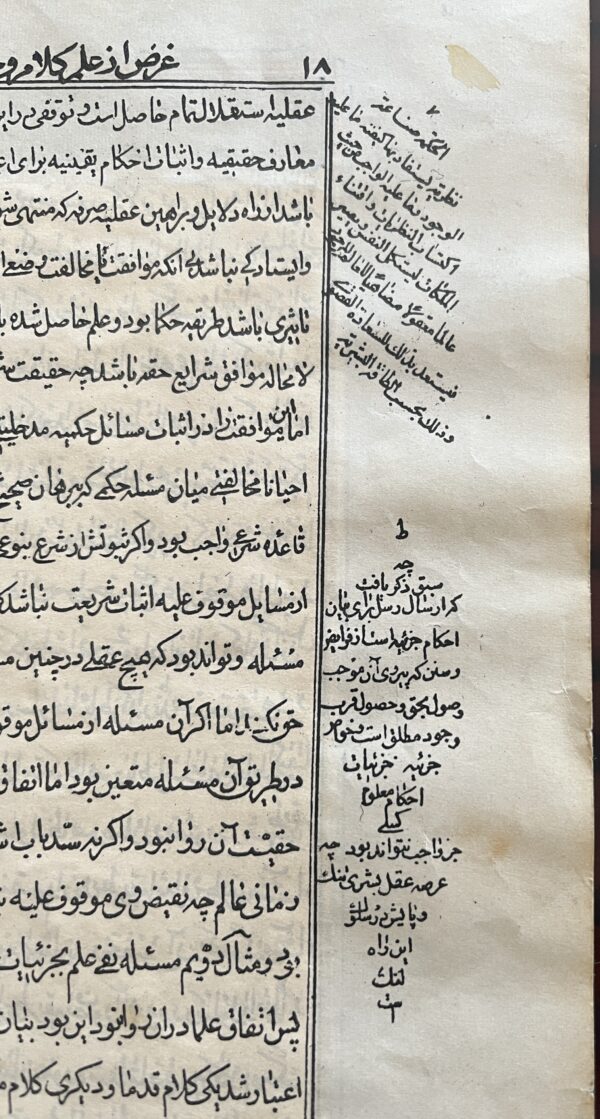 ۱۸ غرض از علم کلام و
عقلیه ستقلال تمام حاصل است و توقفی در این
معارف حقیقیه و اثبات احکام یقینیه برای اع
باشد از راه دلایل و براهین عقلیه صرفه که منتهی شو
وایستادکی نباشد بی آنکه موافقت یا مخالفت وضعی از
تاثیری باشد طریقه حکما بود و علم حاصل شده با
لا محاله موافق شرایع حقه باشد چه حقیقت شر
اما این موافقت را در اثبات مسائل حکمیه مدخلیتی
احیانا مخالفتی میان مسئله حکمی که ببرهان صحیح
قاعده شرعی واجب بود و اکر ثبوتش از شرع بنوعی
از مسایل موقوف علیه اثبات شریعت نباشد که
مسئله و تواند بود که هیچ عقلی در چنین مس
حق نکند اما اکر آن مسئله از مسائل موقو
در طریق آن مسئله متعین بود اما اتفاق
حقیت آن روا نبود و اکر نه سدّ باب اث
زمانی عالم چه نقیض وی موقوف علیه ث
بود و مثال دویم مسئله نفی علم بجزئیات
پس اتفاق علما در ان روا نبود این بود بیان
اعتبار شد یکی کلام قدما و دیکری کلام م
الحکمة صناعة
نظریة یستفاد بها کیفیة ما علیه
الوجود و ما علیه الواجب من حیث
اکتساب النظریات و اقتناء
الملکات لتستکمل النفس و یصیر
عالما معقولا مضاهیا للعالم الموجود
فیستعد بذلک للسعادة القصوی
و ذلک بحسب الطاقة البشریة
ط
چه
سبق ذکر یافت
که ارسال رسل برای بیان
احکام جزئیه است از فرایض
و سنن که پیروی آن موجب
وصول بحق و حصول قرب
وجود مطلق است و خواص
جزئیه جزئیات
احکام معلوم
کسی
جز واجب نتواند بود چه
عرصه عقل بشری تنک
و پایش در سلوک
این راه
لنک
است